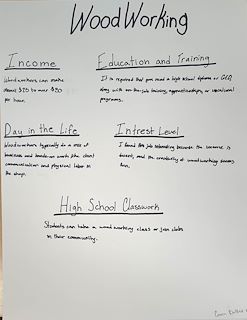 WoodWorking
Income
Woodworkers can make
about $20 to over $30
per hour.
Education and Training
It is required that you need a high school diploma or GED
along with on-the-job training, apprenticeships, or vocational
programs.
Day in the Life
Woodworkers typically do a mix of
business and hands-on work like client
communication and physical labor in
the shop.
Intrest Level
I found this job interesting because the income is
decent, and the creativity of woodworking seems
fun.
High School Classwork
Students can take a wood working class or join clubs
in their community.